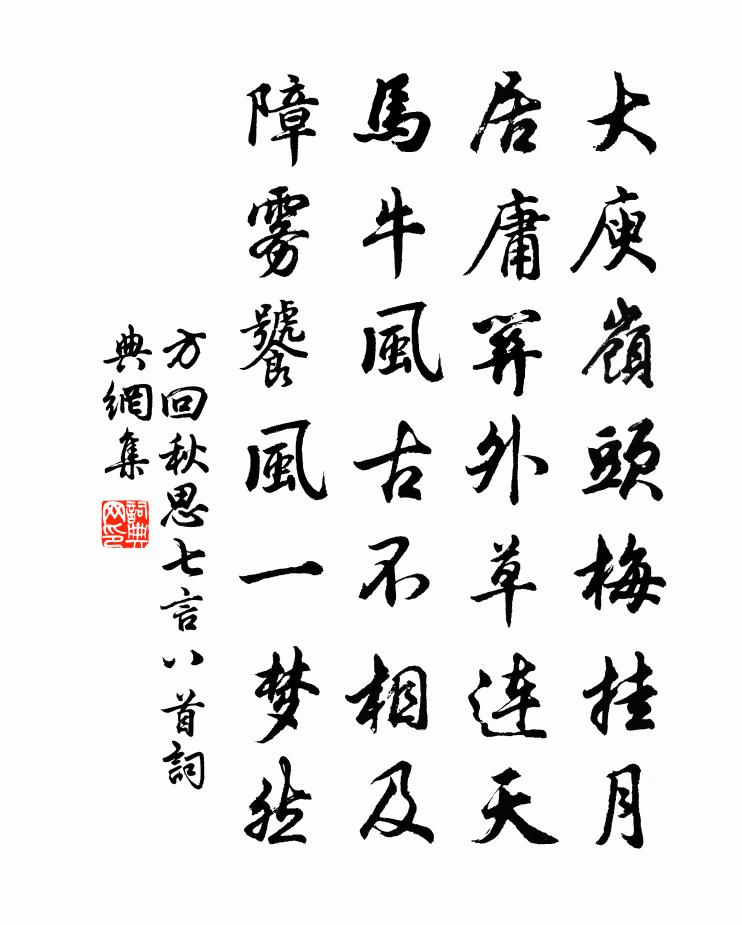 大庾嶺頭梅挂月
居庸關外草連天
馬牛風古不相及
障雾饕風一梦然
方回秋思七言八首詞
典網集
詞典
网印